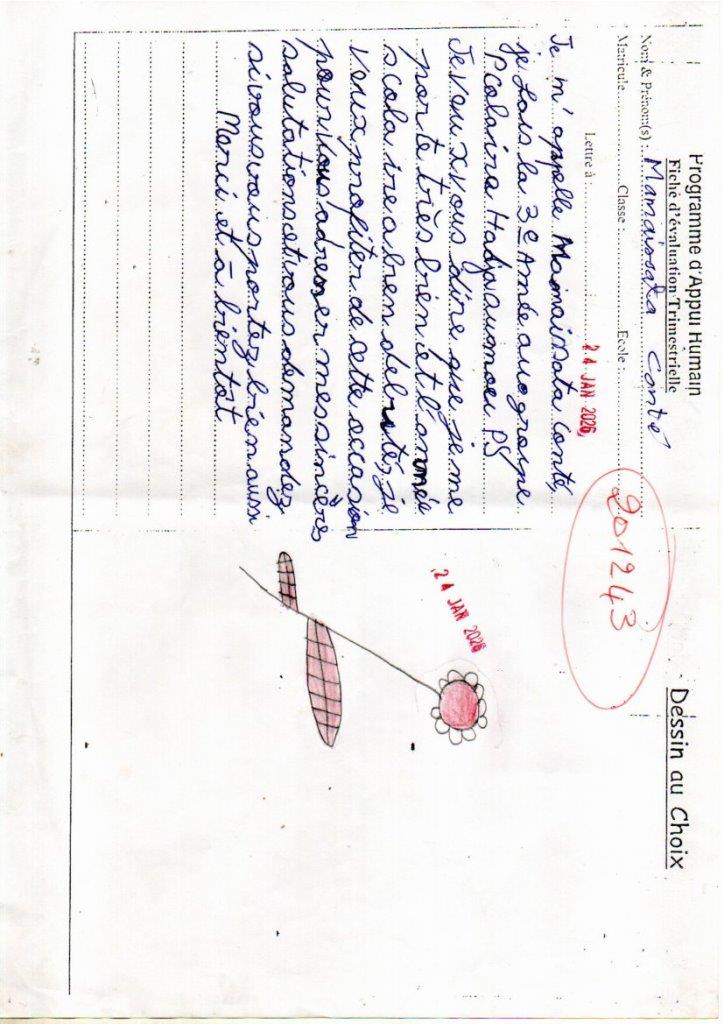 Programme d'Appui Humain
Fiche d'évaluation Trimestrielle
Nom & Prénom(s) : Mamaissata Conté
Matricule Classe : Ecole :
201243
Lettre à :
24 JAN 2026
Je m'appelle Mamaissata Conte,
je fais la 3e Année au groupe
Scolaire PS
Je veux vous dire que je me
porte très bien et l'année
scolaire a bien debuté, je
veux profiter de cette occasion
pour vous adresser mes sincères
salutations et vous demandez
si vous vous portez bien aussi
Merci et à bientot
Dessin au Choix
24 JAN 2026